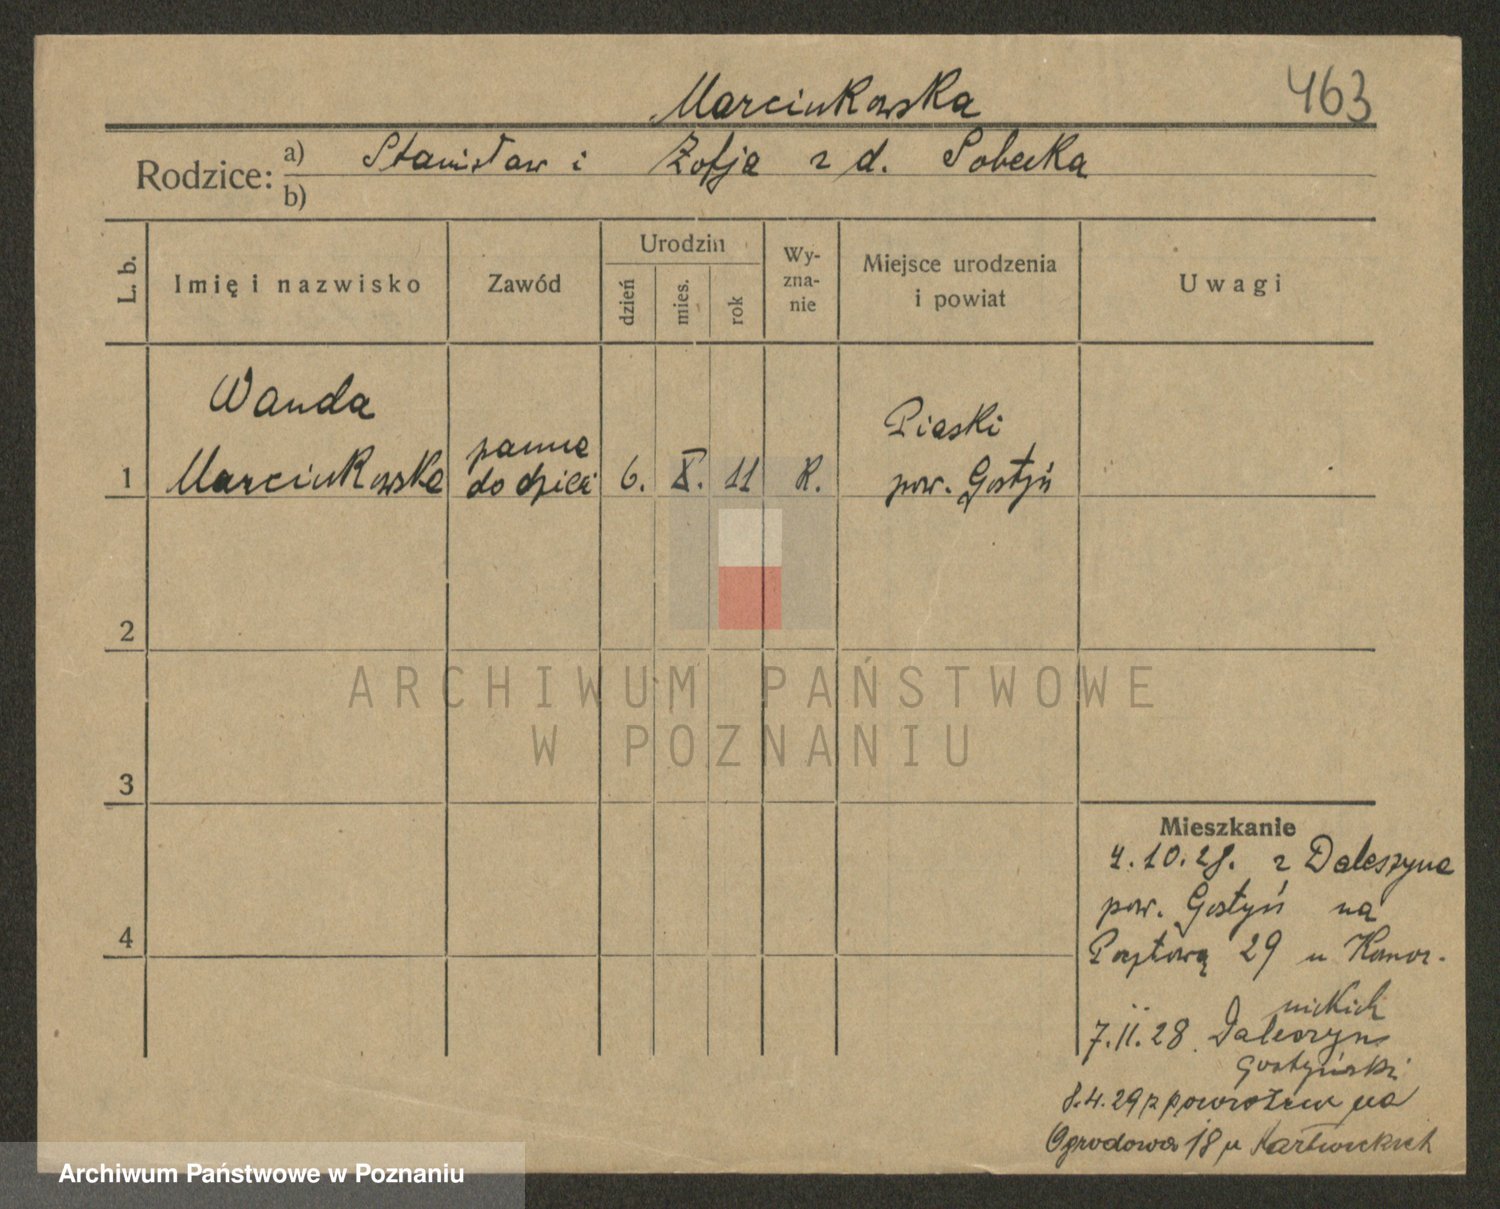 Marcinkowska 463
Rodzice: a) Stanisław i Zofja z d. Sobecka
b)
L. b. Imię i nazwisko Zawód Urodzin dzień mies. rok Wy-zna-nie Miejsce urodzenia i powiat Uwagi
Wanda
1 Marcinkowska panna do dzieci 6. X. 11 R. Piaski pow. Gostyń
2
ARCHIWUM PAŃSTWOWE
W POZNANIU
3
Mieszkanie
4.10.28. z Daleszyna
pow. Gostyń na
4
Pocztową 29 u Konor-
nickich
7.11.28 Daleszyn
gostyński
8.4.29 z powrotem na
Ogrodowa 18 u
Archiwum Państwowe w Poznaniu